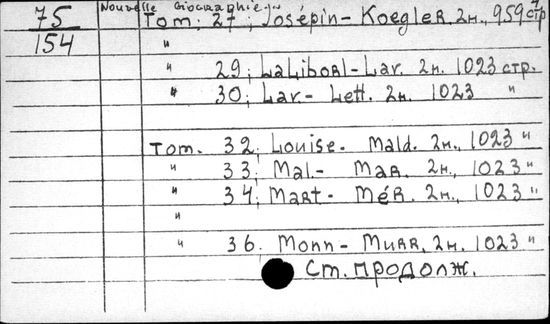 75 Nouvelle Biographie
Tom: 27; Josépin-Koegler. 2н., 959 стр
154 "
" 29; LaLiboral-Lav. 2н. 1023 стр.
" 30; Lav- Lett. 2н. 1023 "
Tom. 32; Louise- Mald. 2н., 1023 "
" 33; Mal.- Mar. 2н., 1023 "
" 34; Mart- Mér. 2н., 1023 "
"
" 36. Monn- Murr. 2н. 1023 "
Ст. продолж.